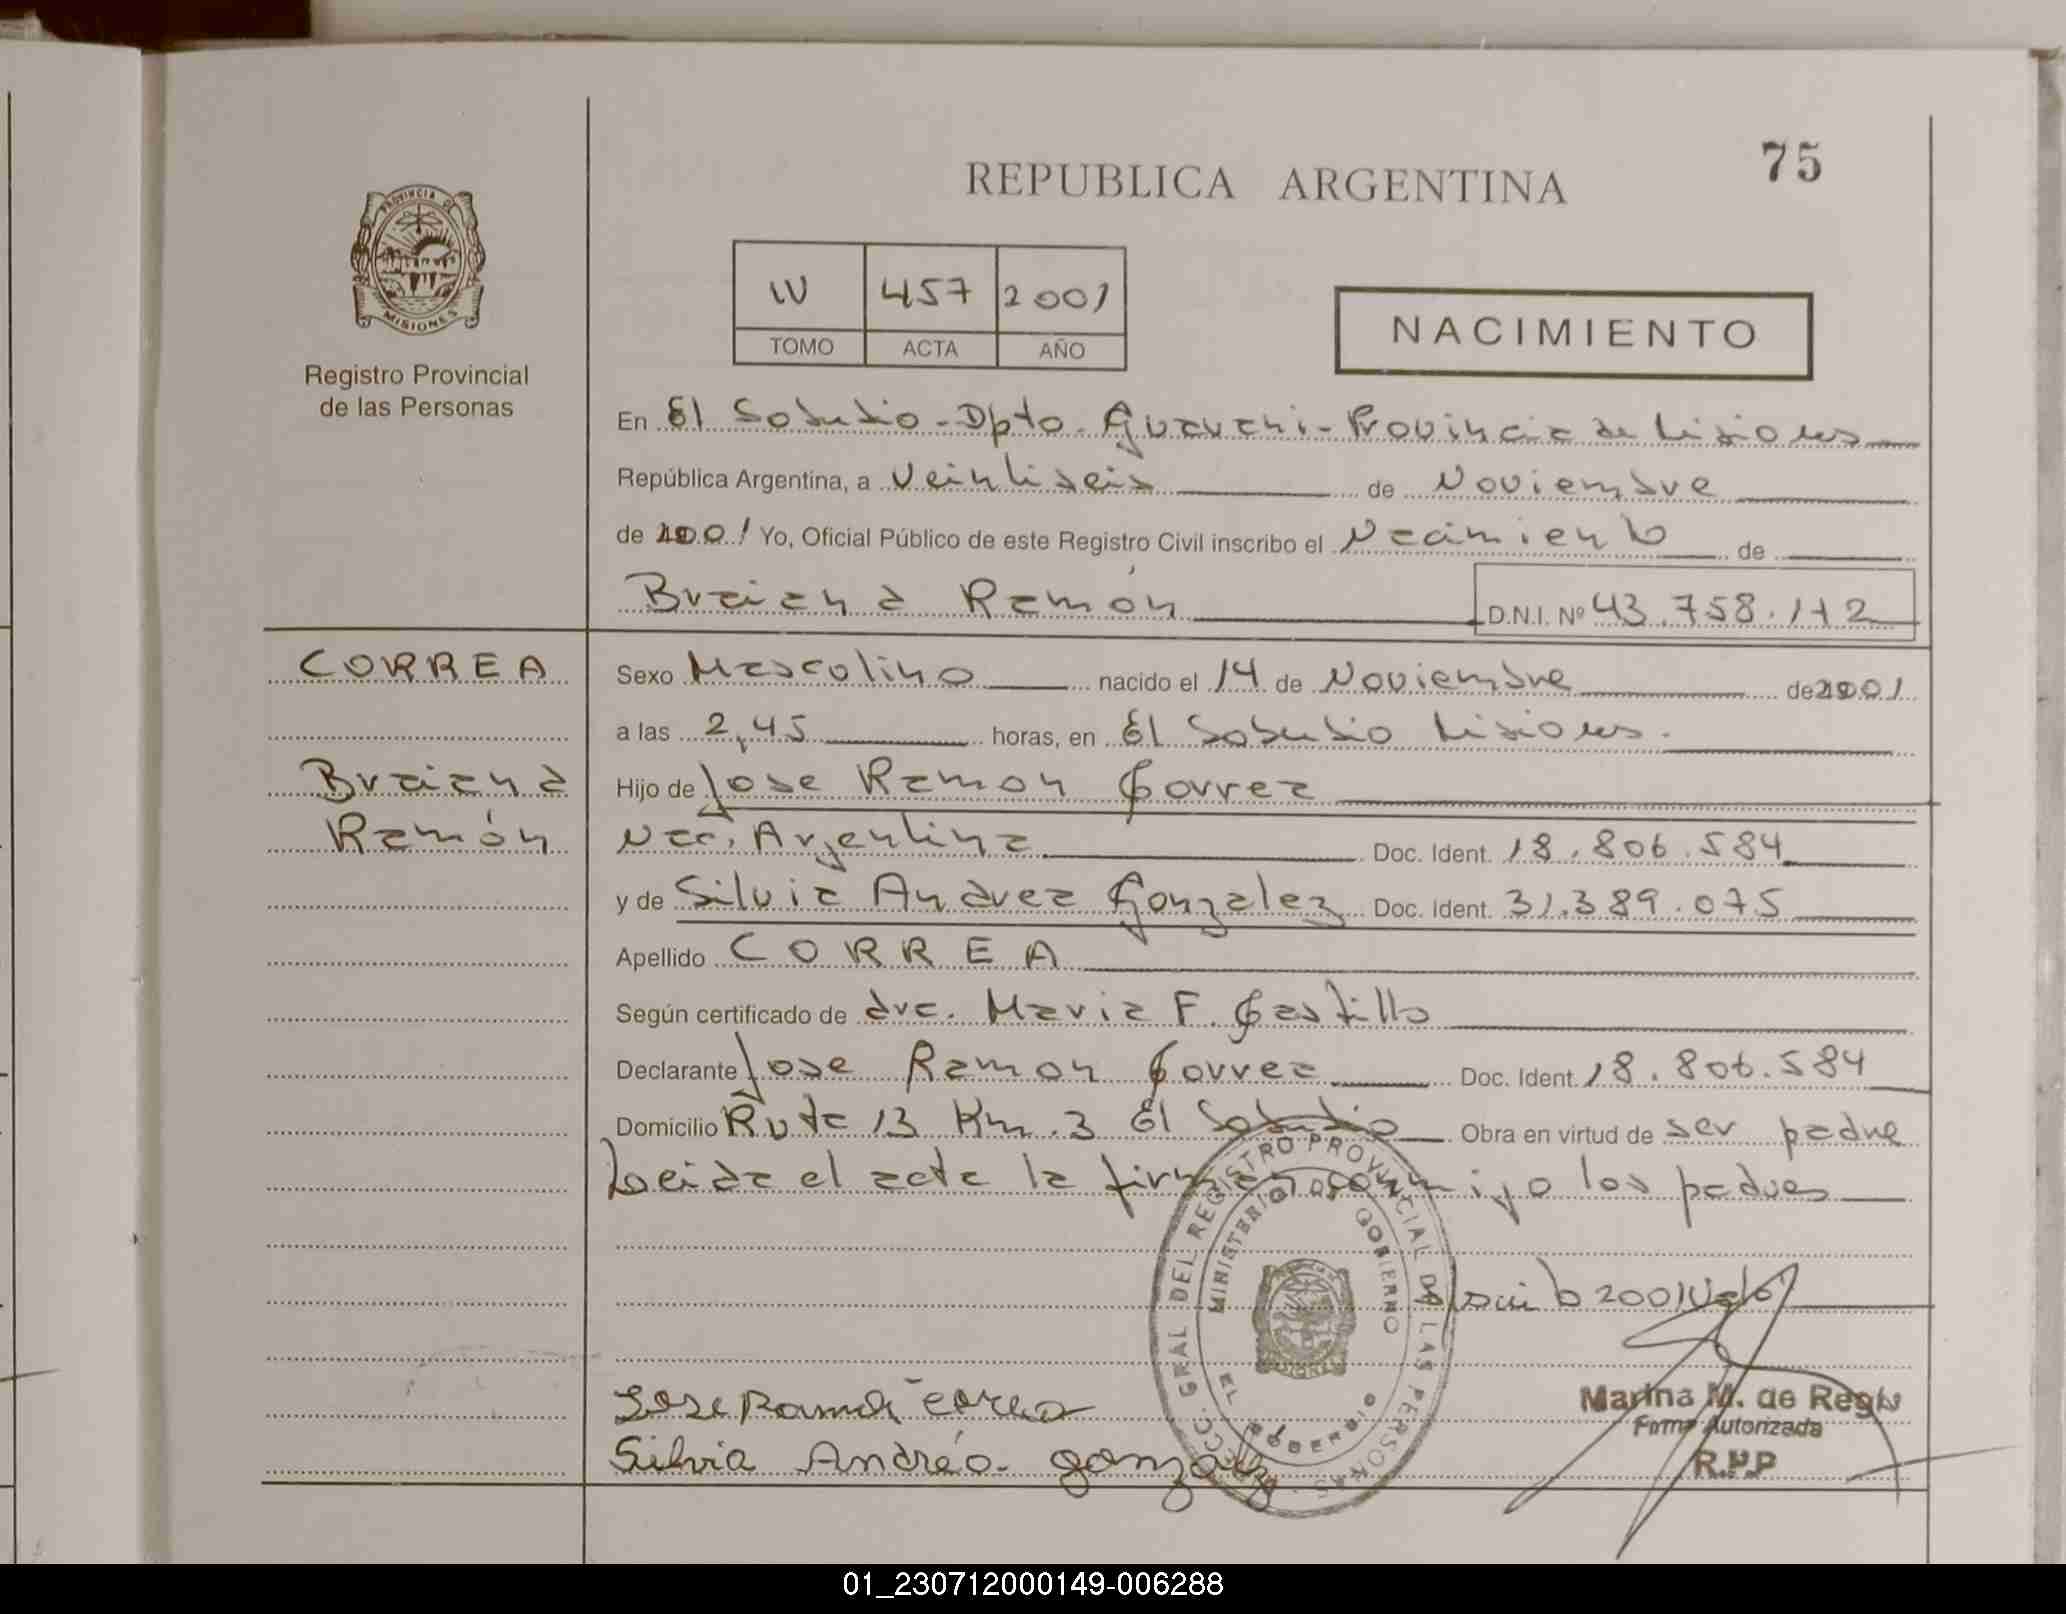 75
REPUBLICA ARGENTINA
PROVINCIA DE
MISIONES
Registro Provincial
de las Personas
IV 457 2001
TOMO ACTA AÑO
NACIMIENTO
En El Soberbio - Dpto. Guarani - Provincia de Misiones
República Argentina, a Veintiseis de Noviembre
de 2001 Yo, Oficial Público de este Registro Civil inscribo el Nacimiento de
Braian Ramón D.N.I. Nº 43.758.112
CORREA Sexo Masculino nacido el 14 de Noviembre de 2001
a las 2,45 horas, en El Soberbio Misiones.
Braian Hijo de Jose Ramon Correa
Ramón Nac. Argentina Doc. Ident. 18.806.584
y de Silvia Andrea Gonzalez Doc. Ident. 31.389.075
Apellido CORREA
Según certificado de dra. Maria F. Castillo
Declarante Jose Ramon Correa Doc. Ident. 18.806.584
Domicilio Ruta 13 Km. 3 El Soberbio Obra en virtud de ser padre
Leida el acta la firman conmigo los padres
2001 Vale
Jose Ramon Correa
Silvia Andrea Gonzalez
DIRECC. GRAL DEL REGISTRO PROVINCIAL DE LAS PERSONAS
MINISTERIO DE GOBIERNO
EL SOBERBIO
Marina M. de Regis
Firma Autorizada
R.P.P
01_230712000149-006288